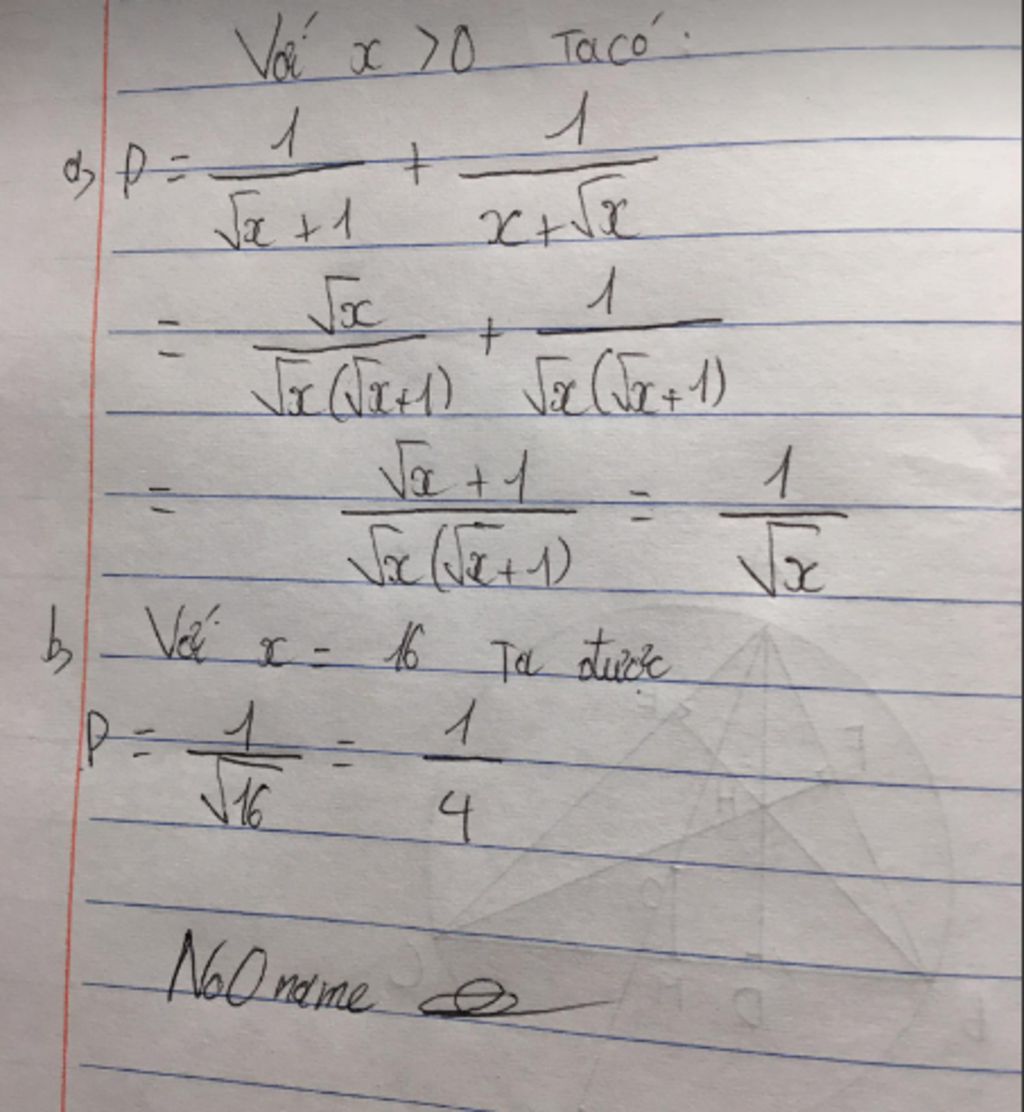 Với x > 0 Ta có :
a, P = 1/(√x + 1) + 1/(x + √x)
= √x/(√x(√x+1)) + 1/(√x(√x+1))
= (√x + 1)/(√x(√x+1)) = 1/√x
b, Với x = 16 Ta được
P = 1/√16 = 1/4
NoOname